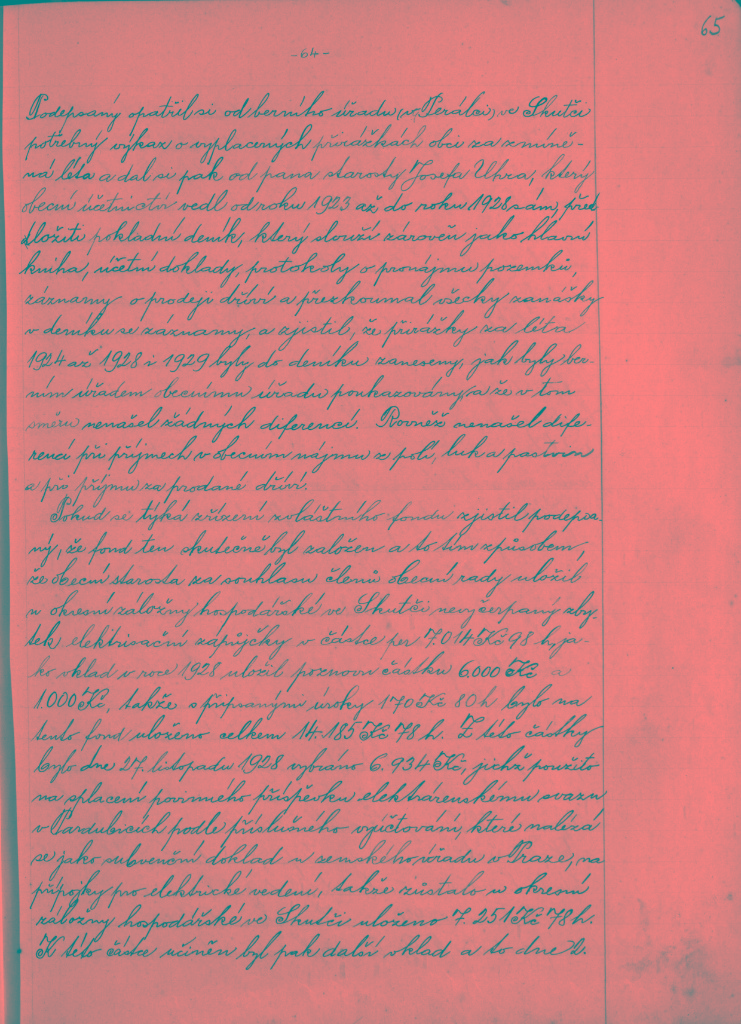 65
-64-
Podepsaný opatřil si od berního úřadu (v Perálci) ve Skutči
potřebný výkaz o vyplacených přirážkách obci za zmíně-
ná léta a dal si pak od pana starosty Josefa Uhra, který
obecní účetnictví vedl od roku 1923 až do roku 1928 sám, před
dložiti pokladní deník, který slouží zároveň jako hlavní
kniha, účetní doklady, protokoly o pronájmu pozemků,
záznamy o prodeji dříví a přezkoumal všecky zanášky
v deníku se záznamy, a zjistil, že přirážky za léta
1924 až 1928 i 1929 byly do deníku zaneseny, jak byly ber-
ním úřadem obecnímu úřadu poukazovány a že v tom
směru nenašel žádných diferencí. Rovněž nenašel dife-
rencí při příjmech v obecním nájmu z polí, luk a pastvin
a při příjmu za prodané dříví.
Pokud se týká zřízení zvláštního fondu zjistil podepsa-
ný, že fond ten skutečně byl založen a to tím způsobem,
že obecní starosta za souhlasu členů obecní rady uložil
u okresní záložny hospodářské ve Skutči nevyčerpaný zby-
tek elektrisační zápůjčky v částce per 7.014 Kč 98 h, ja-
ko vklad v roce 1928 uložil poznovu částku 6.000 Kč a
1.000 Kč, takže s připsanými úroky 170 Kč 80 h bylo na
tento fond uloženo celkem 14.185 Kč 78 h. Z této částky
bylo dne 27. listopadu 1928 vybráno 6.934 Kč, jichž použito
na splacení povinného příspěvku elektrárenskému svazu
v Pardubicích podle příslušného vyúčtování, které nalézá
se jako subvenční doklad u zemského úřadu v Praze, na
přípojky pro elektrické vedení, takže zůstalo u okresní
záložny hospodářské ve Skutči uloženo 7.251 Kč 78 h.
K této částce učiněn byl pak další vklad a to dne 2.